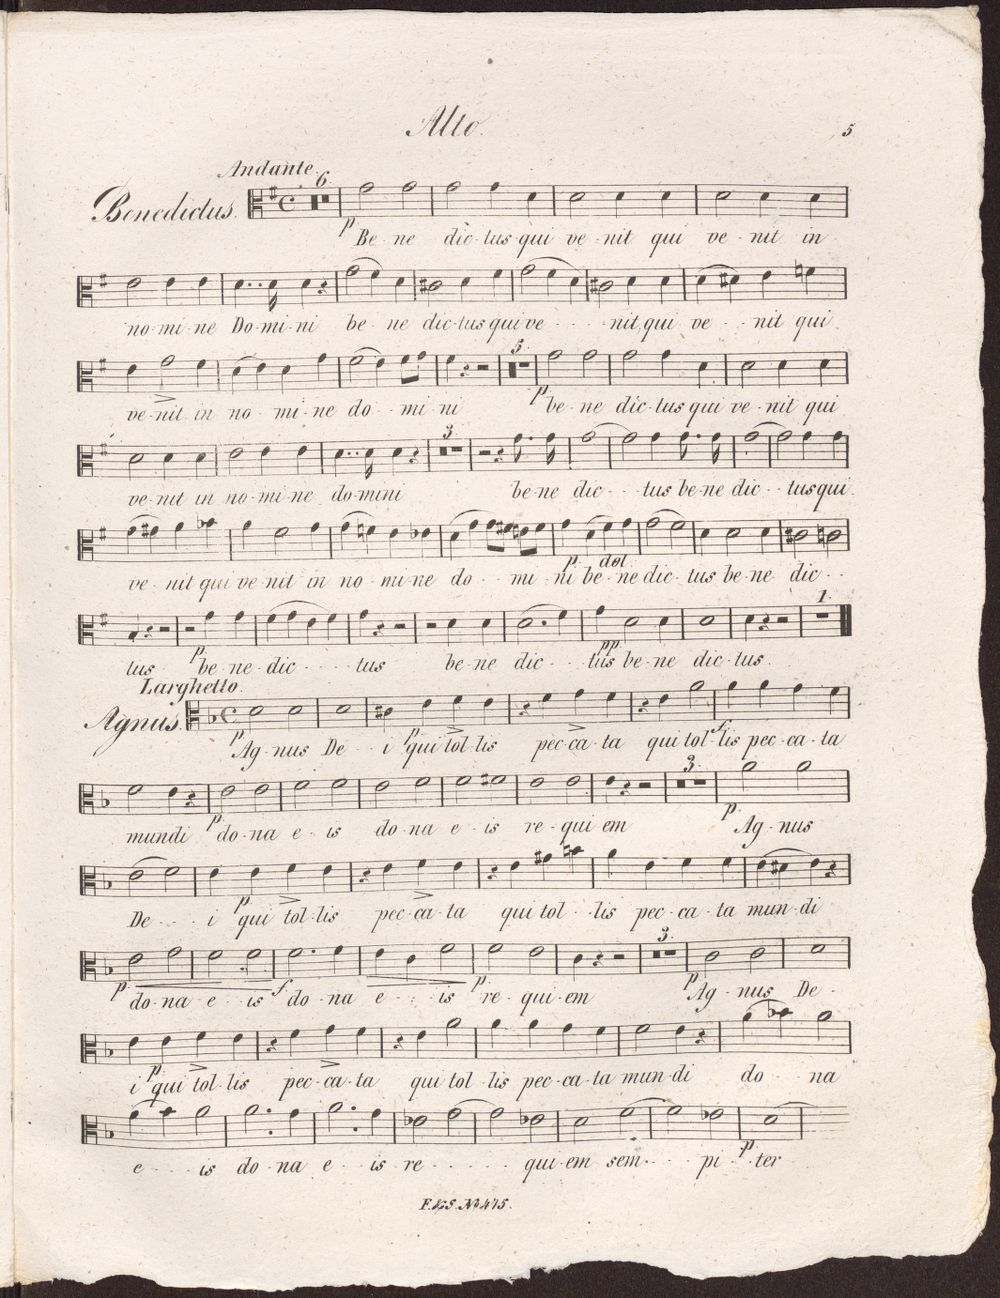 Alto.
5
Andante.
6
Benedictus.
p Be - ne dic - tus qui ve - nit qui ve - nit in
no - mi - ne Do - mi - ni be - ne dic - tus qui ve - - - nit, qui ve - - nit qui
5.
ve - nit in no - mi - ne do - mi - ni p be - ne dic - tus qui ve - nit qui
3
ve - nit in no - mi - ne do - mini be - ne dic - - - tus be - ne dic - - tus qui
ve - nit qui ve - nit in no - mi - ne do - - mi - ni p. be - ne dol. dic - tus be - ne dic - - -
1.
tus p. be - ne - dic - - - tus be - ne dic - - - tus pp. be - ne dic - tus.
Larghetto.
Agnus.
p Ag - nus De - i p qui tol - lis pec - ca - ta qui tol - f lis pec - ca - ta
3.
mundi p. do - na e - is do - na e - is re - qui em p. Ag - nus
De - - - i p. qui tol - lis pec - ca - ta qui tol - - lis pec - ca - ta mun - di
3.
p. do - na e - - is f do - na e - - - is p. re - qui - em p Ag - nus De -
i p. qui tol - lis pec - ca - ta qui tol - lis pec - ca - ta mun - di do - - na
e - - - is do - na e - - is re - - - - - qui - em sem - - - pi - - p. ter
F. 45 S. No 475.